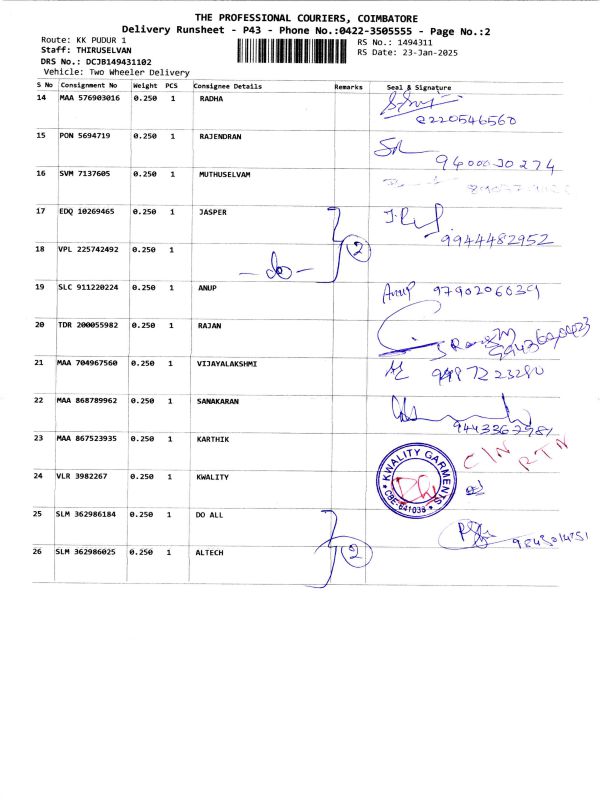 THE PROFESSIONAL COURIERS, COIMBATORE
Delivery Runsheet - P43 - Phone No.:0422-3505555 - Page No.:2
Route: KK PUDUR 1
RS No.: 1494311
Staff: THIRUSELVAN
RS Date: 23-Jan-2025
DRS No.: DCJB149431102
Vehicle: Two Wheeler Delivery
S No Consignment No Weight PCS Consignee Details Remarks Seal & Signature
14 MAA 576903016 0.250 1 RADHA
8220546560
15 PON 5694719 0.250 1 RAJENDRAN
9400030274
16 SVM 7137605 0.250 1 MUTHUSELVAM
17 EDQ 10269465 0.250 1 JASPER
9944482952
2
18 VPL 225742492 0.250 1
- do -
19 SLC 911220224 0.250 1 ANUP Anup 9790206039
20 TDR 200055982 0.250 1 RAJAN
21 MAA 704967560 0.250 1 VIJAYALAKSHMI
22 MAA 868789962 0.250 1 SANAKARAN
23 MAA 867523935 0.250 1 KARTHIK
C/N RTN
24 VLR 3982267 0.250 1 KWALITY
KWALITY GARMENTS
CBE-641038
25 SLM 362986184 0.250 1 DO ALL
26 SLM 362986025 0.250 1 ALTECH
2